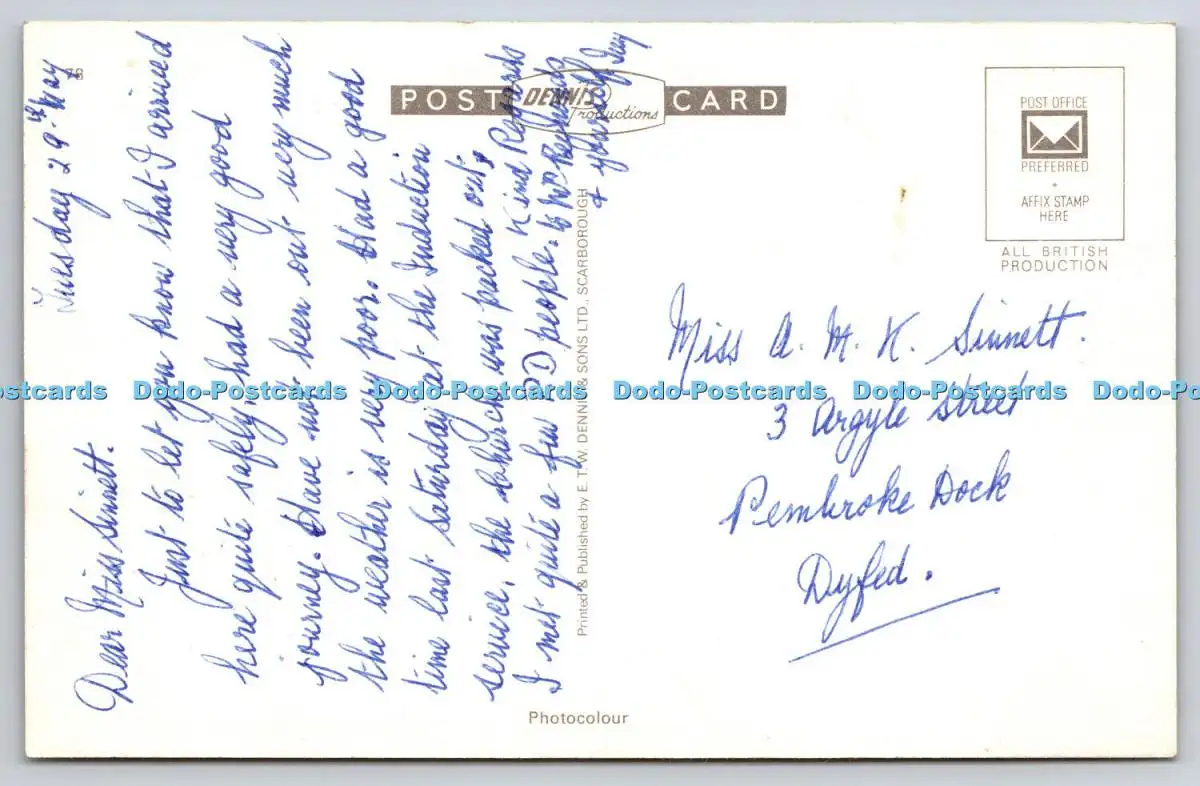 Tuesday 29th May
78
Dear Miss Sinnett.
Just to let you know that I arrived
here quite safely, had a very good
journey. Have not been out very much
the weather is very poor. Had a good
time last Saturday at the Induction
service, the church was packed out,
I met quite a few P D people. Kind Regards
to Mr
& yourself
POST CARD
DENNIS
Productions
Printed & Published by E. T. W. DENNIS & SONS LTD., SCARBOROUGH
Photocolour
POST OFFICE
PREFERRED
AFFIX STAMP
HERE
ALL BRITISH
PRODUCTION
Miss A. M. K. Sinnett.
3 Argyle Street
Pembroke Dock
Dyfed.
Postcards Dodo-Postcards Dodo-Postcards Dodo-Postcards Dodo-Postcards Dodo-Po